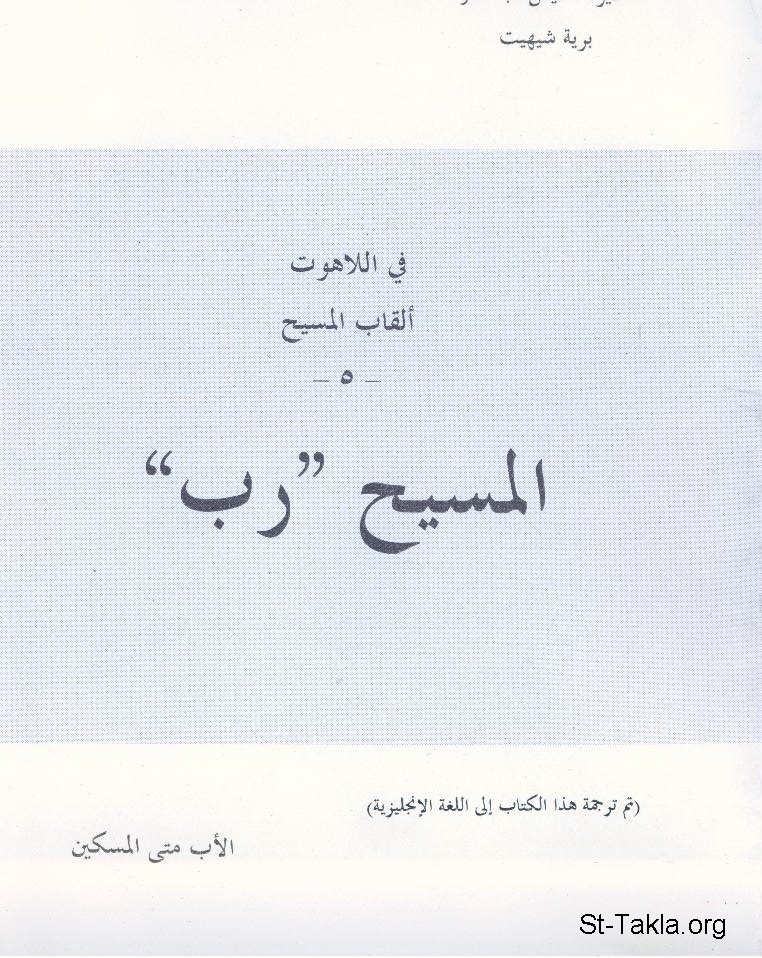 برية شيهيت
في اللاهوت
ألقاب المسيح
– ٥ –
المسيح ”رب“
(تم ترجمة هذا الكتاب إلى اللغة الإنجليزية)
الأب متى المسكين
St-Takla.org